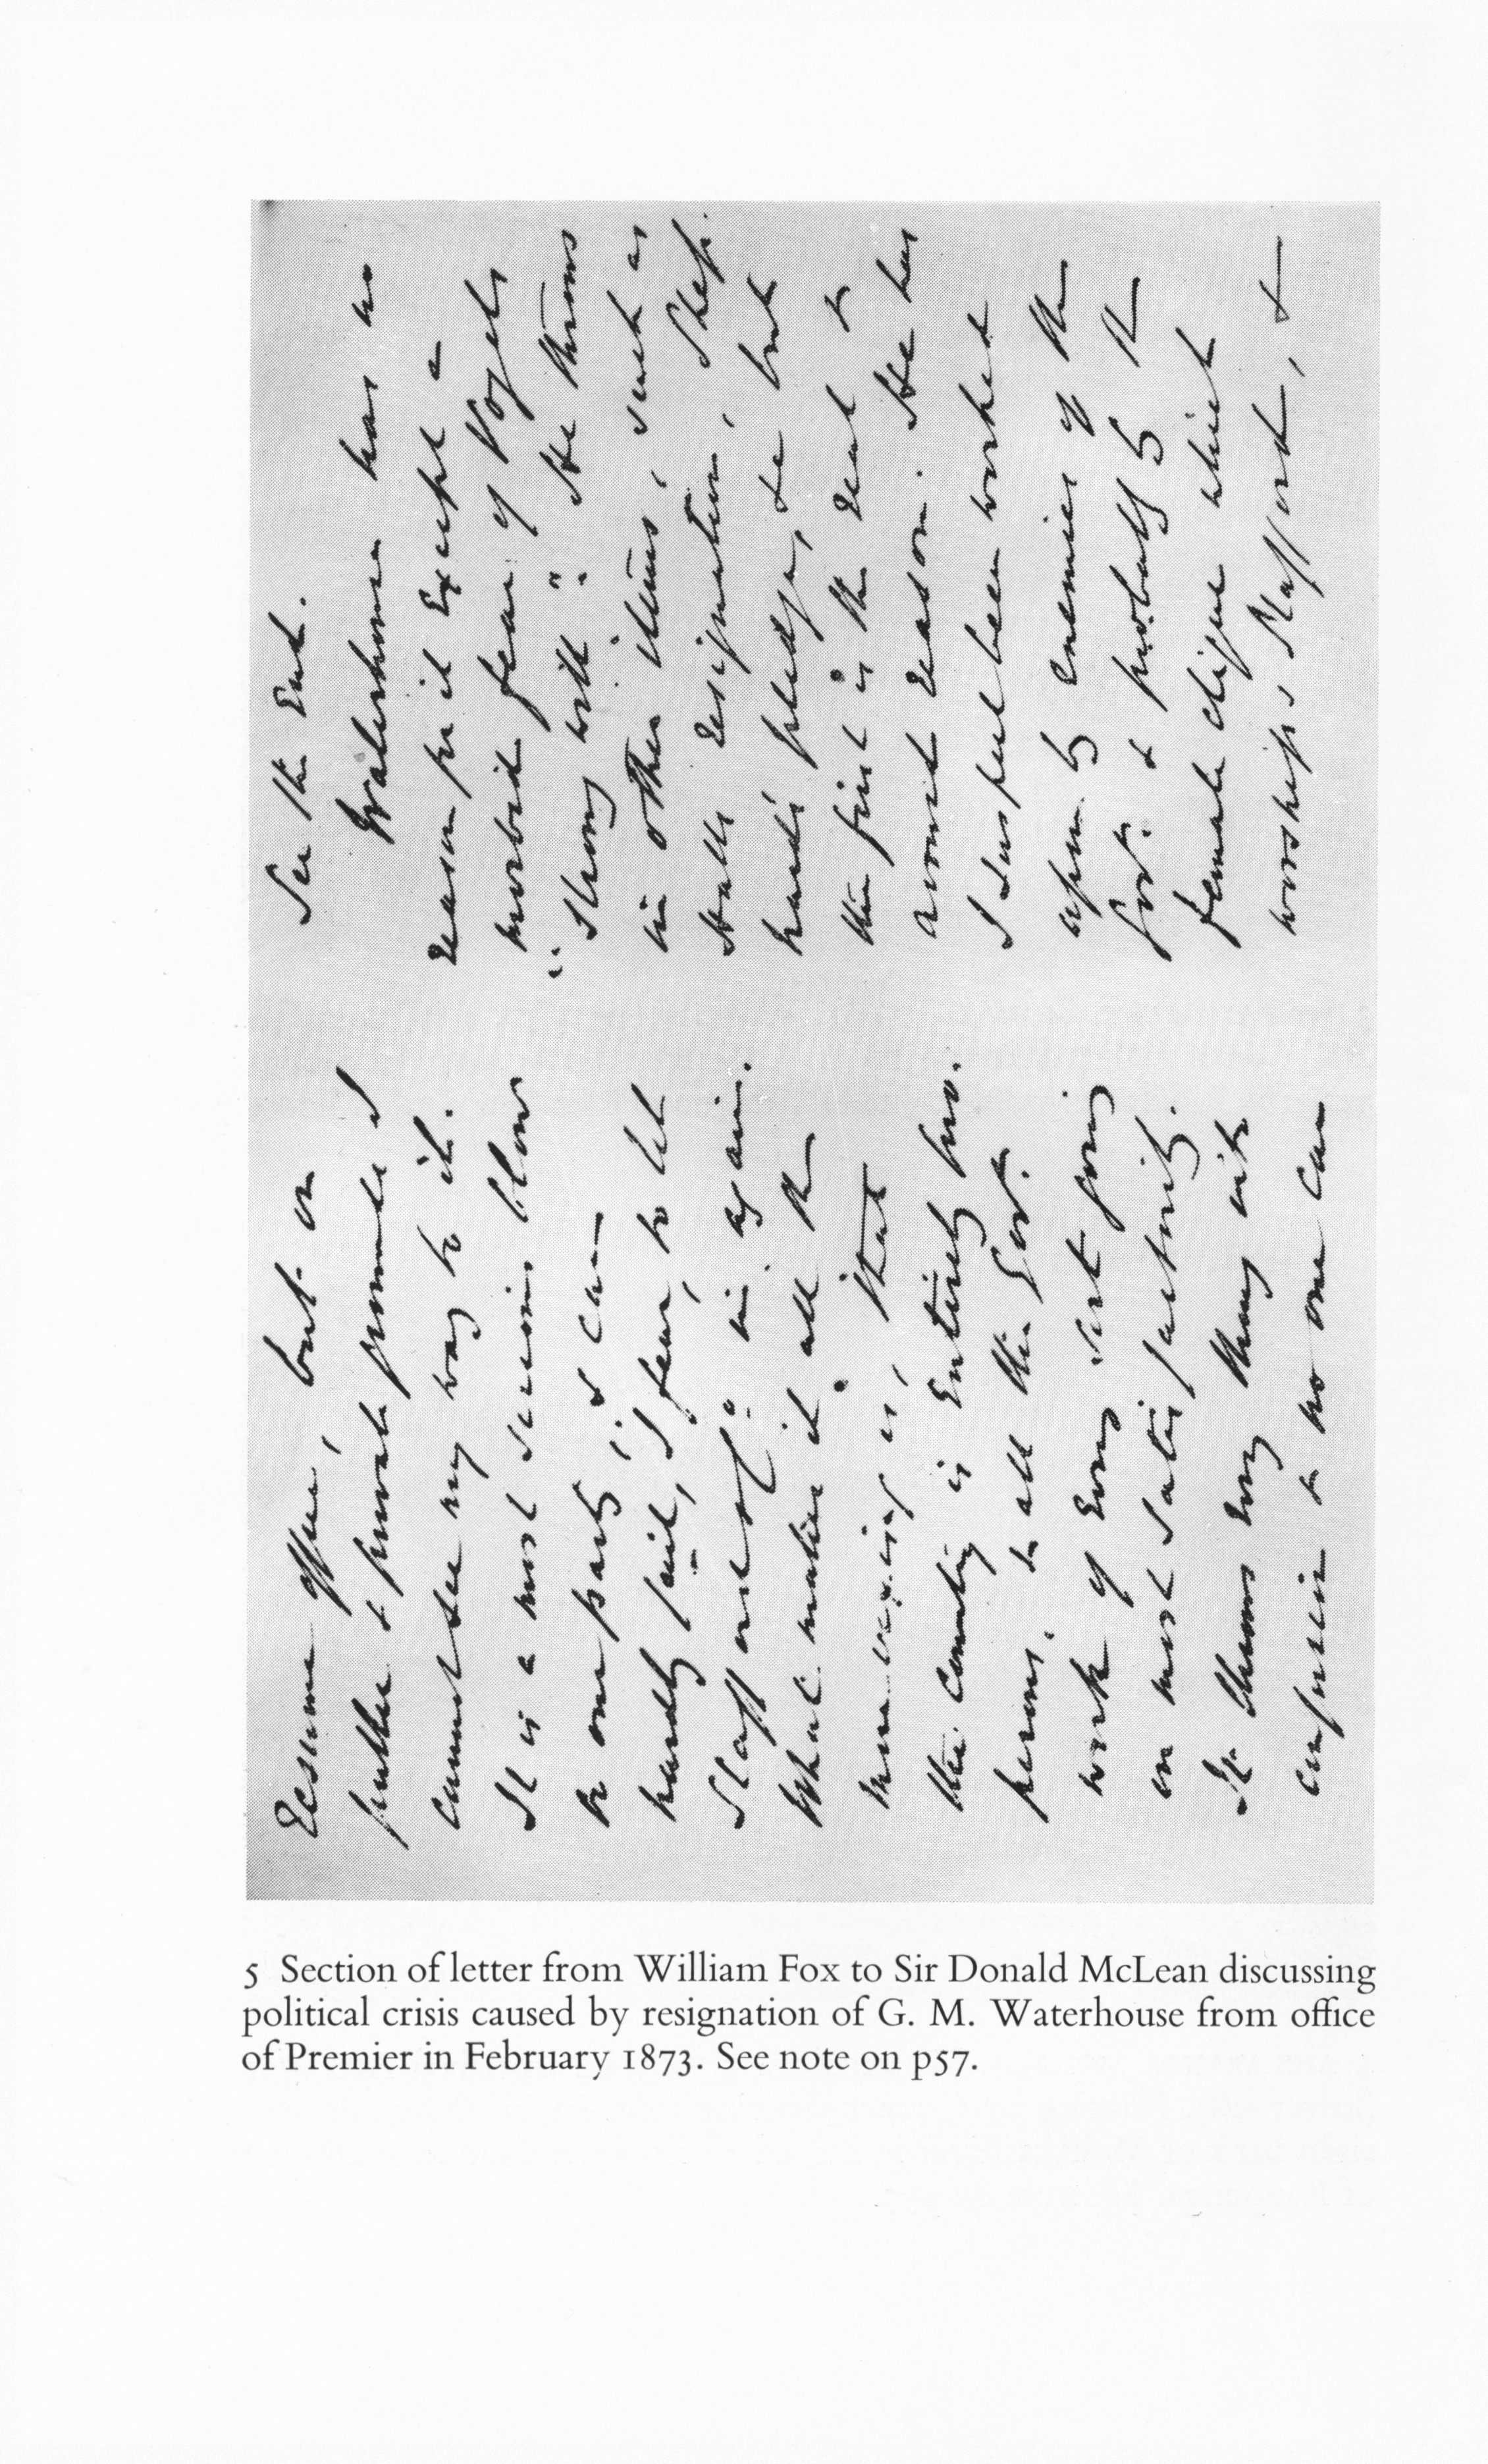 resume office, but on
public & private grounds I
cannot see my way to it.
It is a most serious blow
to our party, & can
hardly fail, I fear, to let
Stafford & Co. in again.
What makes it all the
more vexing is, that
the country is entirely pro-
perous, & all the Govt.
work of every sort going
on most satisfactorily.
It throws every thing into
confusion & no one can
See the End.
Waterhouse has no
reason for it Except a
morbid fear of Vogel's
"strong will". He throws
in other items, such as
Hall's resignation, Shep-
hard's pledges, &c but
the first is the real &
avowed reason. He has
I suspect been worked
upon by enemies of the
Govt. & probably by the
female clique which
worships Stafford, &
5 Section of letter from William Fox to Sir Donald McLean discussing
political crisis caused by resignation of G. M. Waterhouse from office
of Premier in February 1873. See note on p57.